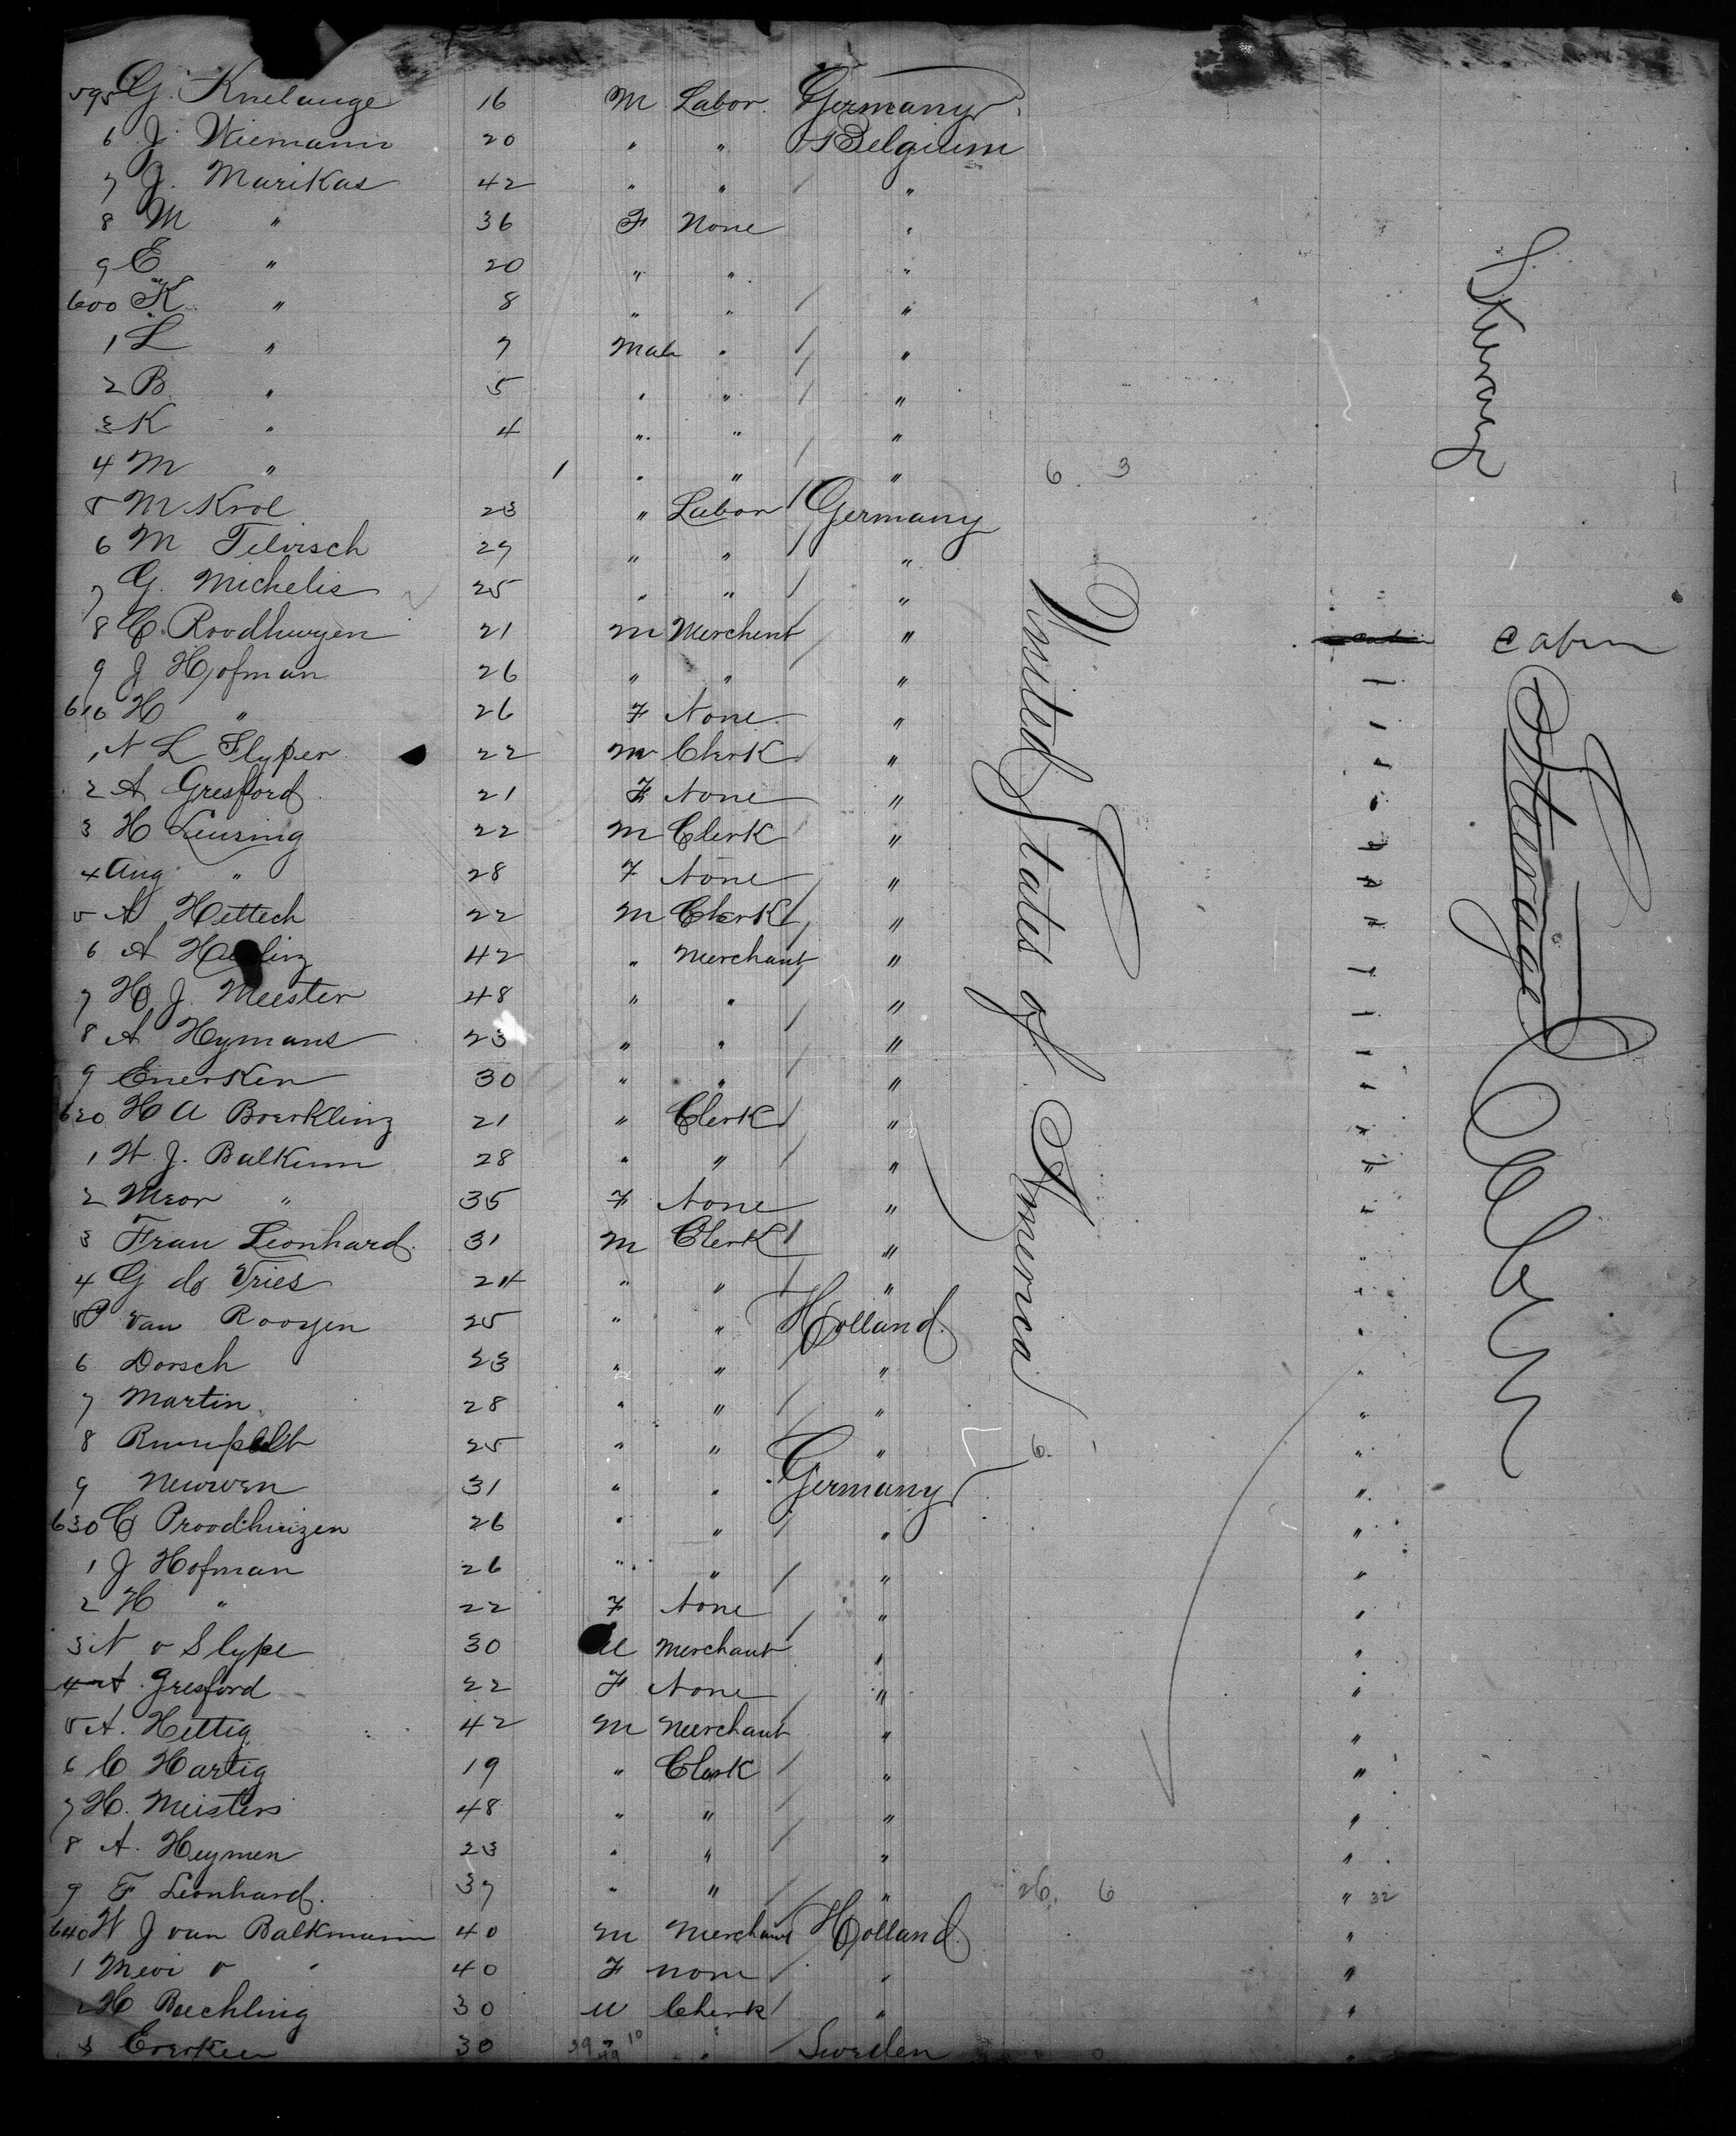 595 G. Knelange 16 M Labor. Germany
6 J. Wiemann 20 " " Belgium
7 J. Marikas 42 " " "
8 M " 36 F None "
9 E " 20 " " "
600 K " 8 " " "
1 L " 7 Male " "
2 B. " 5 " " "
3 K " 4 " " "
4 M " 1 " " " 6 3
5 M Krol 23 " Labor Germany
6 M Telvisch 29 " " "
7 G. Michelis 25 " " "
8 C. Roodhuyen 21 M Merchent " Cabin
9 J Hofman 26 " " "
610 H " 26 F None "
1 N L Slyper 22 M Clerk "
2 A Gresford 21 F None "
3 H Leusing 22 M Clerk "
4 Aug " 28 F None "
5 A Hettech 22 M Clerk "
6 A 42 " Merchant "
7 H J. Meester 48 " " "
8 A Hymans 23 " " "
9 Enerken 30 " " "
620 H A Boerkling 21 " Clerk "
1 W. J. Balkumn 28 " " "
2 Meor " 35 F None "
3 Frau Leonhard. 31 M Clerk "
4 G de Vries 24 " " "
5 P van Rooyen 25 " " Holland
6 Dorsch 23 " " "
7 Martin 28 " " "
8 25 " " " 6.
9 31 " " Germany
630 C Proodhuizen 26 " " "
1 J Hofman 26 " " "
2 H " 22 F None "
3 N v Slype 30 M Merchant "
4 A. Gresford 22 F None "
5 A. Hettig 42 M Merchant "
6 C Hartig 19 " Clerk "
7 H. Meisters 48 " " "
8 A. Heymen 23 " " "
9 F Leonhard. 37 " " " 26. 6 " 32
640 W J van Balkmann 40 M Merchant Holland
1 Mevr v " 40 F none " "
2 H Beechling 30 M Clerk " "
3 Enerken 30 " " Sweden
United States of America
Steerage
Steerage
Cabin